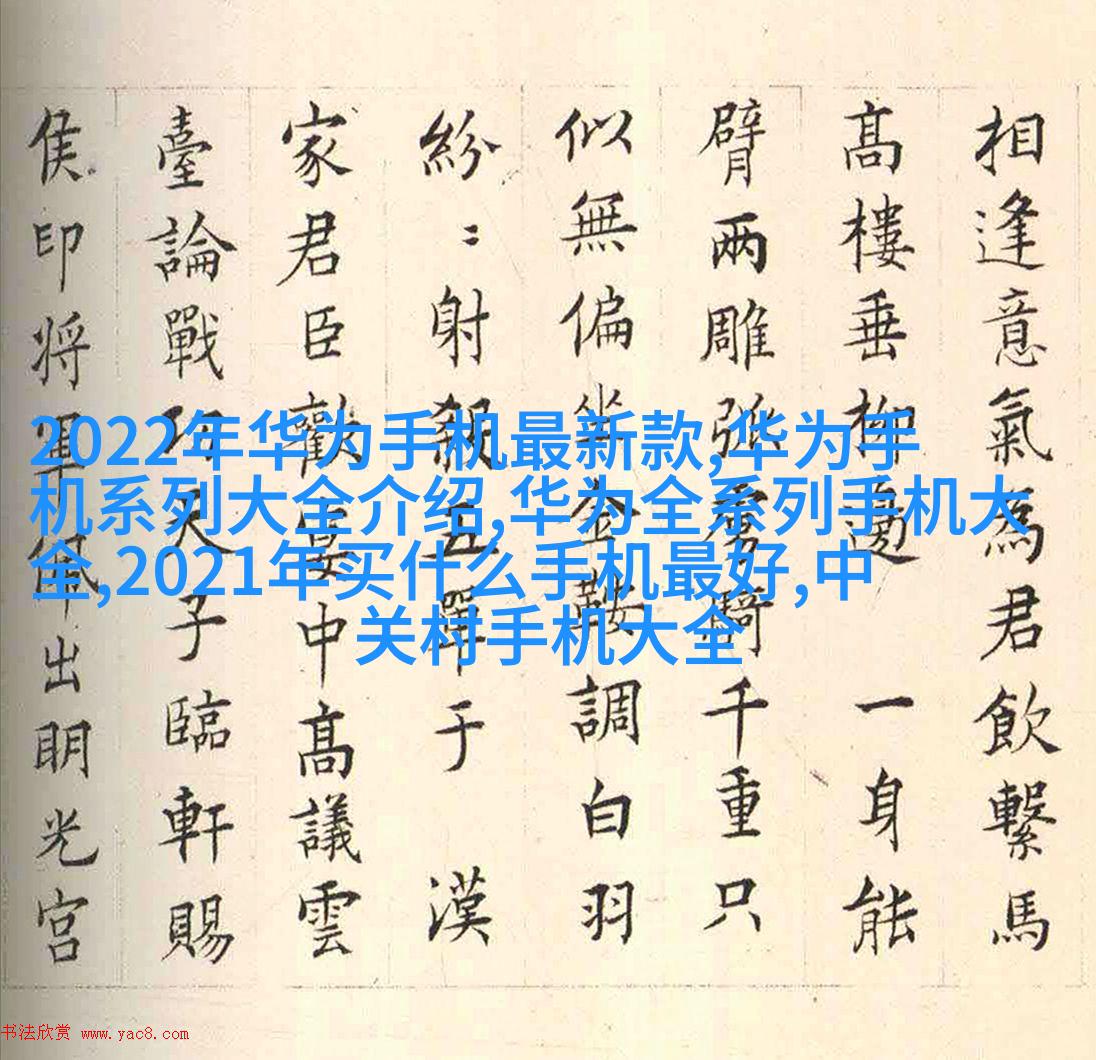 相逢意氣為君飲繫馬
髙樓垂柳邊 一身能
臂兩雕弧虜騎千重只
似無偏坐金鞍調白羽
紛〻射殺五單于 漢
家君臣歡宴中髙議雲
臺論戰功天子臨軒賜
侯印将軍佩出明光宮
2022年华为手机最新款,华为手
机系列大全介绍,华为全系列手机大
全,2021年买什么手机最好,中
关村手机大全
书法欣赏 www.yac8.com